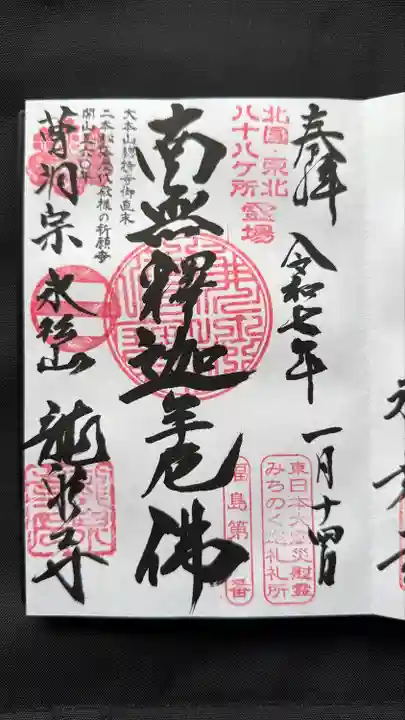 奉拝
令和七年 一月十四日
北国・東北
八十八ケ所霊場
東日本大震災慰霊
みちのく巡礼札所
南無釈迦牟尼佛
福島第 番
大本山總持寺御直末
二本松藩歴代殿様の祈願寺
開山五六〇年
曹洞宗 永松山 龍泉寺